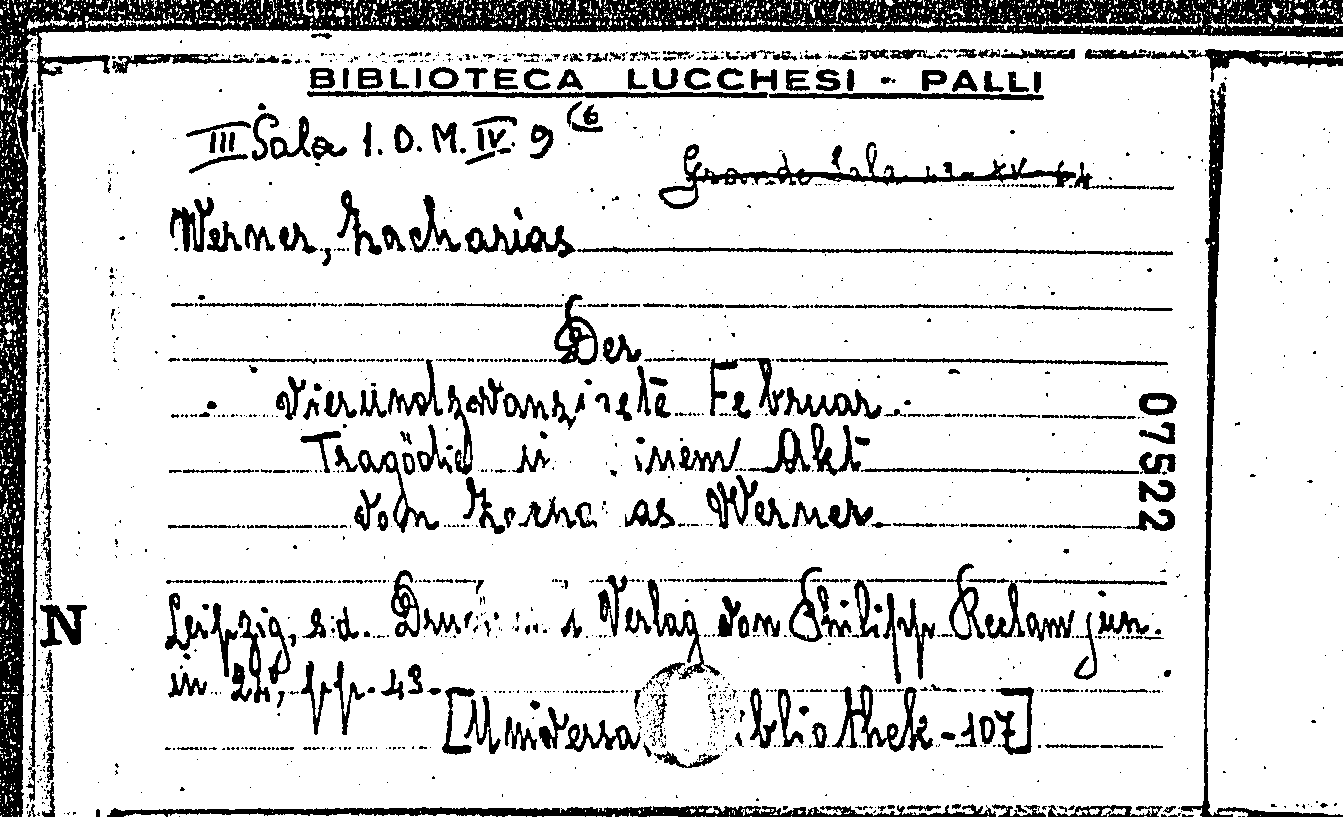 BIBLIOTECA LUCCHESI - PALLI
III Sala 1. D. M. IV. 9 (6
Grande Sala 43-XV-64
Werner, Zacharias
Der
vierundzwanzigste Februar.
Tragödie in einem Akt
von Zacharias Werner.
07522
Leipzig, s.d. Druck Verlag von Philipp Reclam jun.
N
in 24°, pp. 43.
[Universal Bibliothek - 107]